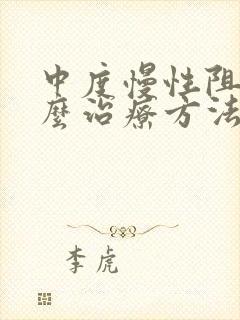 中度慢性阻
麽治疗方法
李虎